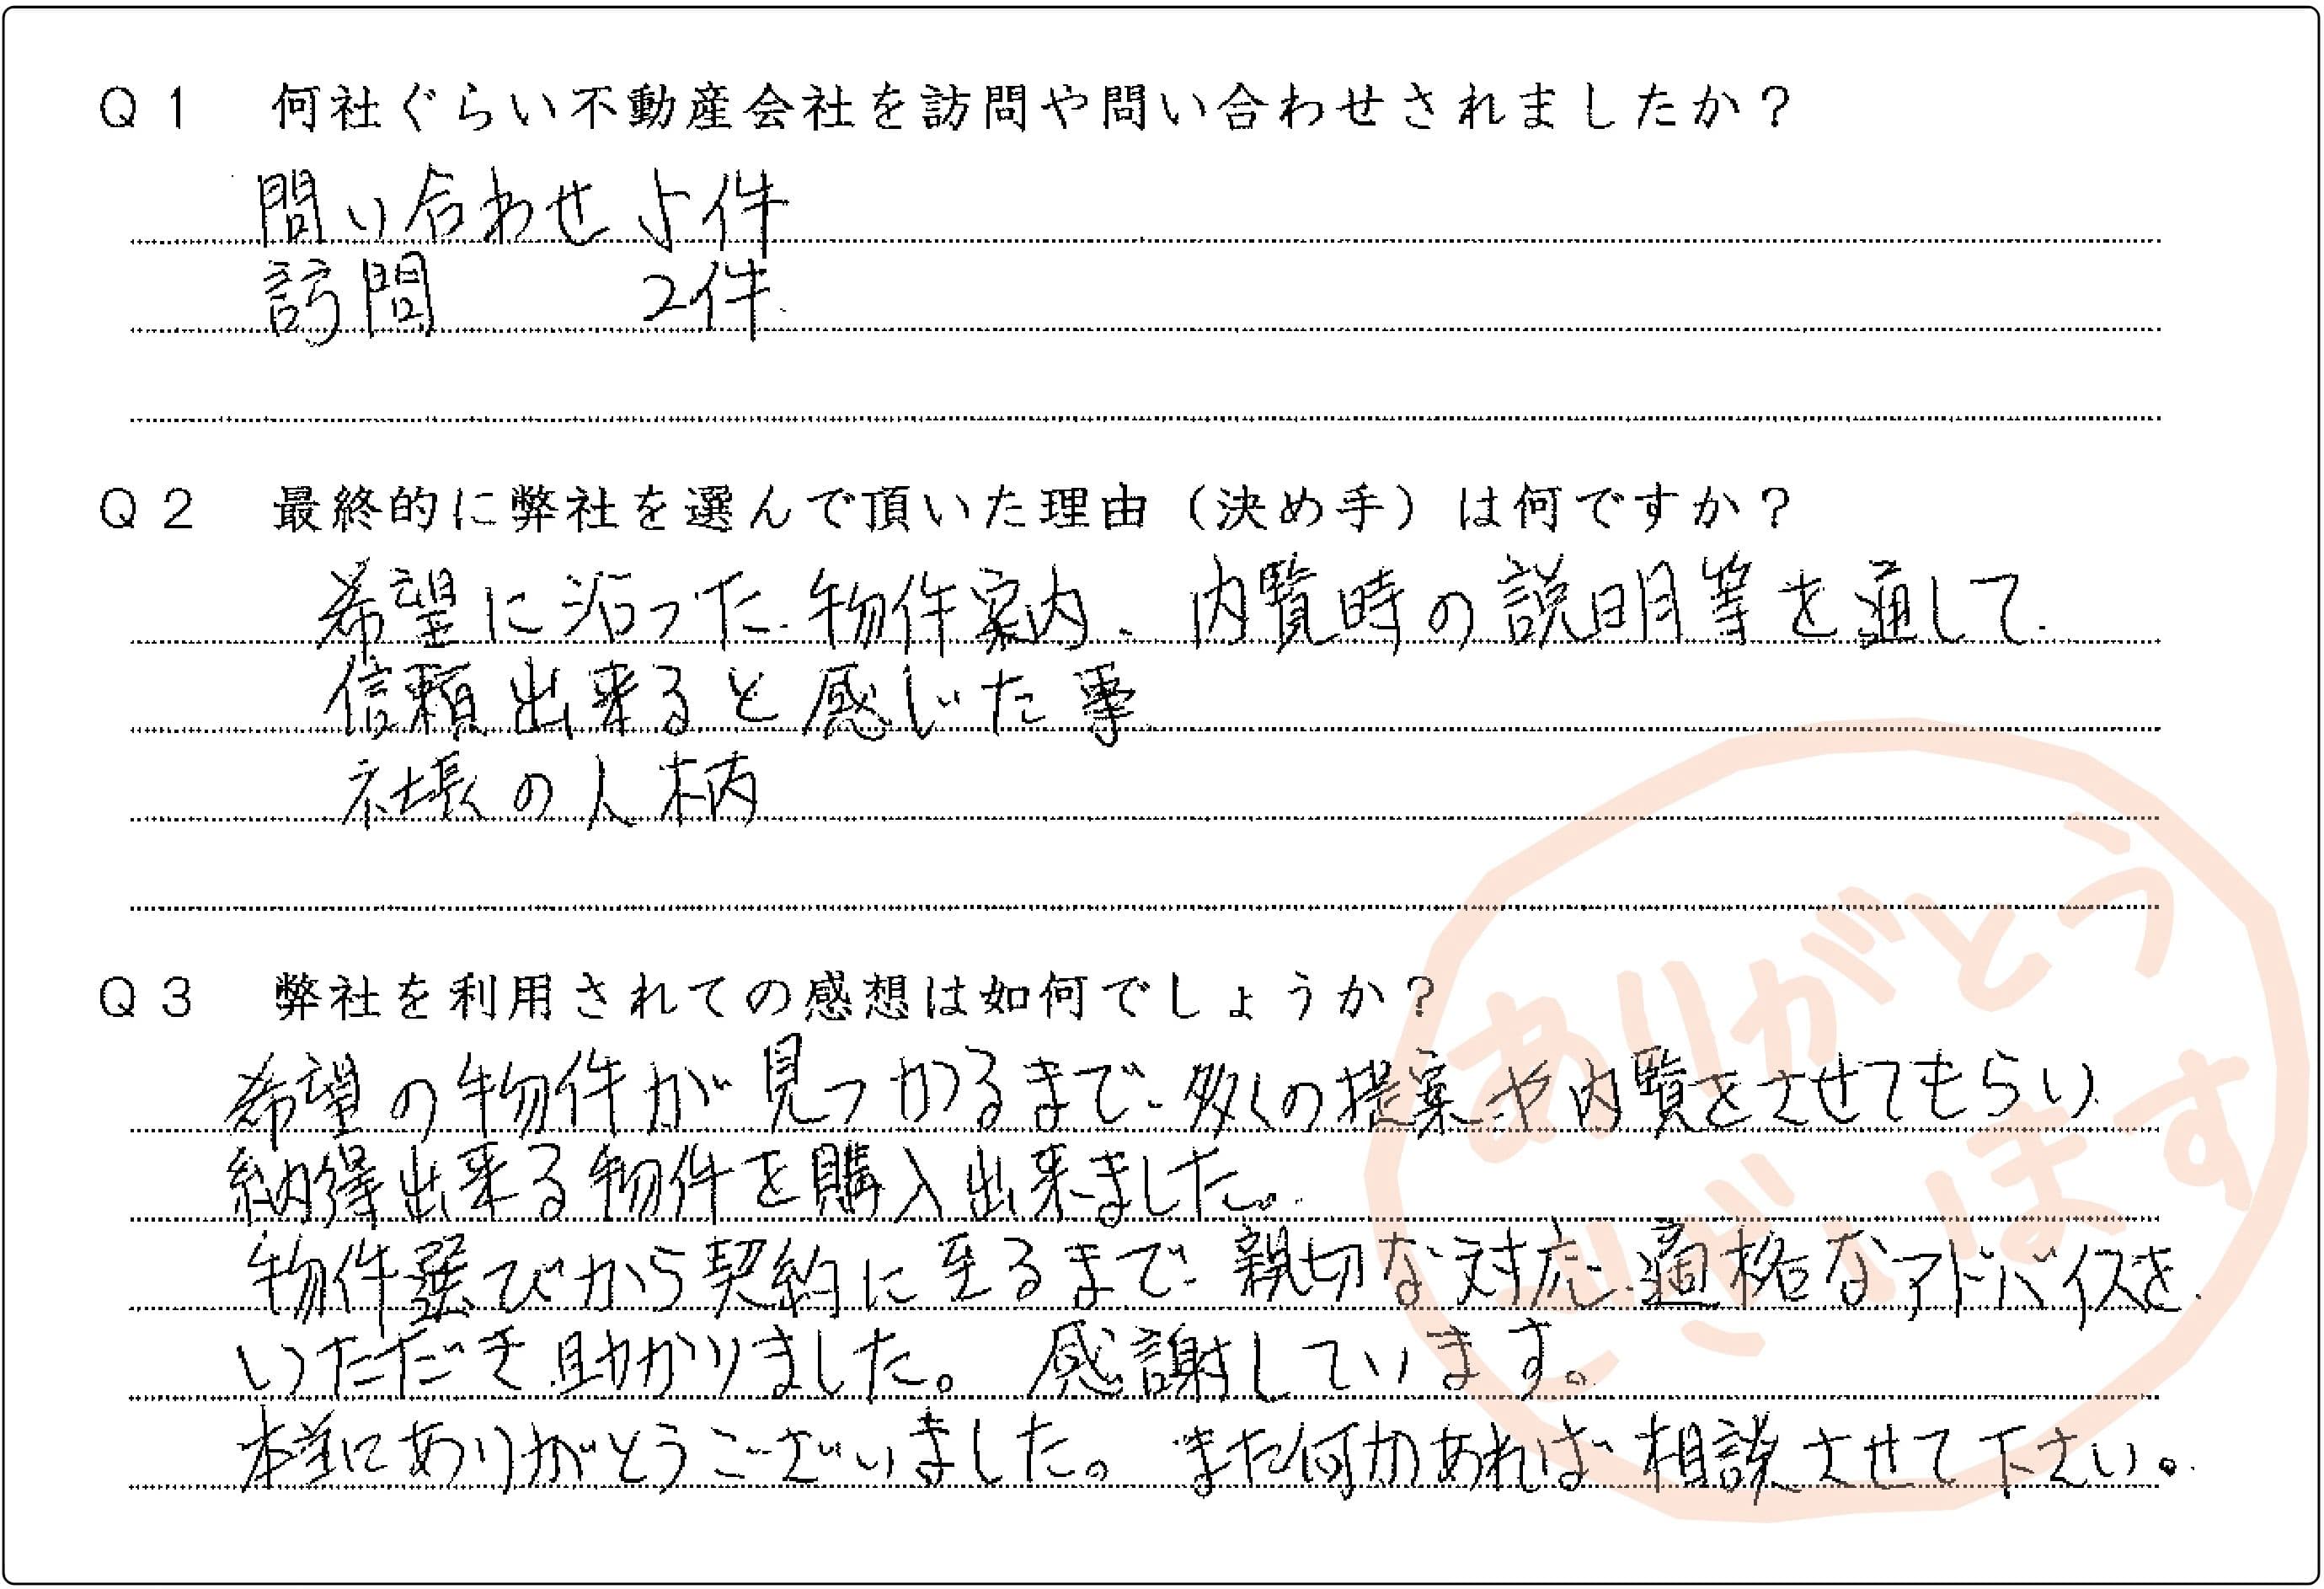 Q1 何社ぐらい不動産会社を訪問や問い合わせされましたか?
問い合わせ 5件
訪問 2件
Q2 最終的に弊社を選んで頂いた理由(決め手)は何ですか?
希望に沿った物件案内、内覧時の説明等を通して
信頼出来ると感じた事
社長の人柄
Q3 弊社を利用されての感想は如何でしょうか?
希望の物件が見つかるまで、多くの提案や内覧をさせてもらい
納得出来る物件を購入出来ました。
物件選びから契約に至るまで、親切な対応、適格なアドバイスを
いただき助かりました。感謝しています。
本当にありがとうございました。また何かあれば相談させて下さい。
ありがとう
ございます